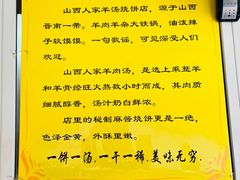 山西人家羊汤烧饼店，源于山西
晋南一带。羊肉羊杂大铁锅，油泼辣
子软馍馍。一句歌谣，可见深受人们
欢迎。
山西人家羊肉汤，是选上乘整羊
和羊骨经旺火熬数小时而成，其肉质
细腻醇香，汤汁奶白鲜浓。
店里的秘制麻酱烧饼更是一绝，
色泽金黄，外酥里嫩。
一饼一汤，一干一稀，美味无穷。